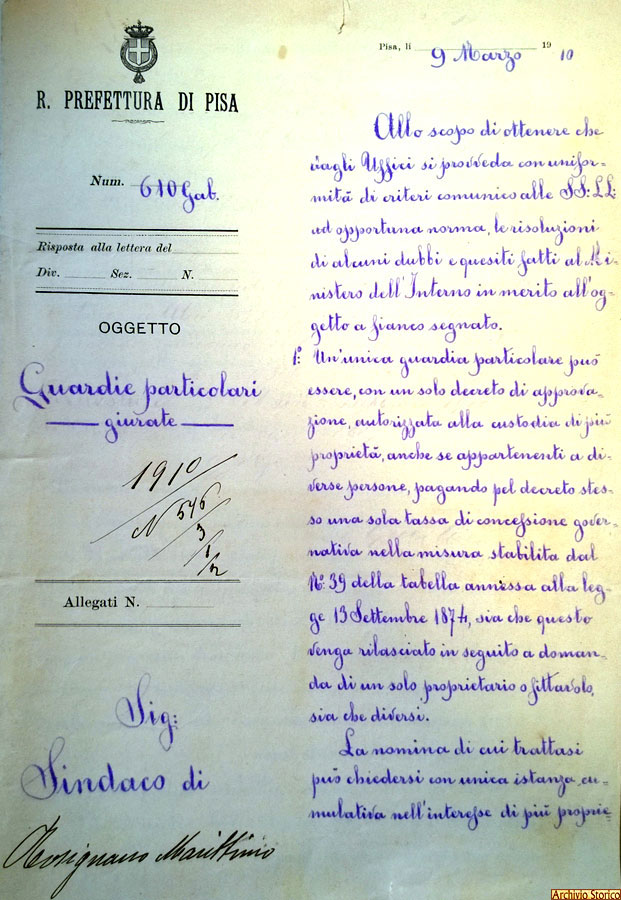 R. PREFETTURA DI PISA
Num. 610 Gab.
Risposta alla lettera del
Div. Sez. N.
OGGETTO
Guardie particolari
giurate
1910
N 546
3
1
2
Allegati N.
Sig:
Sindaco di
Rosignano Marittimo
Pisa, li 9 Marzo 19 10
Allo scopo di ottenere che
dagli Uffici si provveda con unifor-
mità di criteri comunico alle SS: LL:
ad opportuna norma, le risoluzioni
di alcuni dubbi e quesiti fatti al Mi-
nistero dell'Interno in merito all'og-
getto a fianco segnato.
1º: Un'unica guardia particolare può
essere, con un solo decreto di approva-
zione, autorizzata alla custodia di più
proprietà, anche se appartenenti a di-
verse persone, pagando pel decreto stes-
so una sola tassa di concessione gover-
nativa nella misura stabilita dal
Nº: 39 della tabella annessa alla leg-
ge 13 Settembre 1874, sia che questo
venga rilasciato in seguito a doman-
da di un solo proprietario o fittavolo,
sia che diversi.
La nomina di cui trattasi
può chiedersi con unica istanza, cu-
mulativa nell'interesse di più proprie-
Archivio Storico